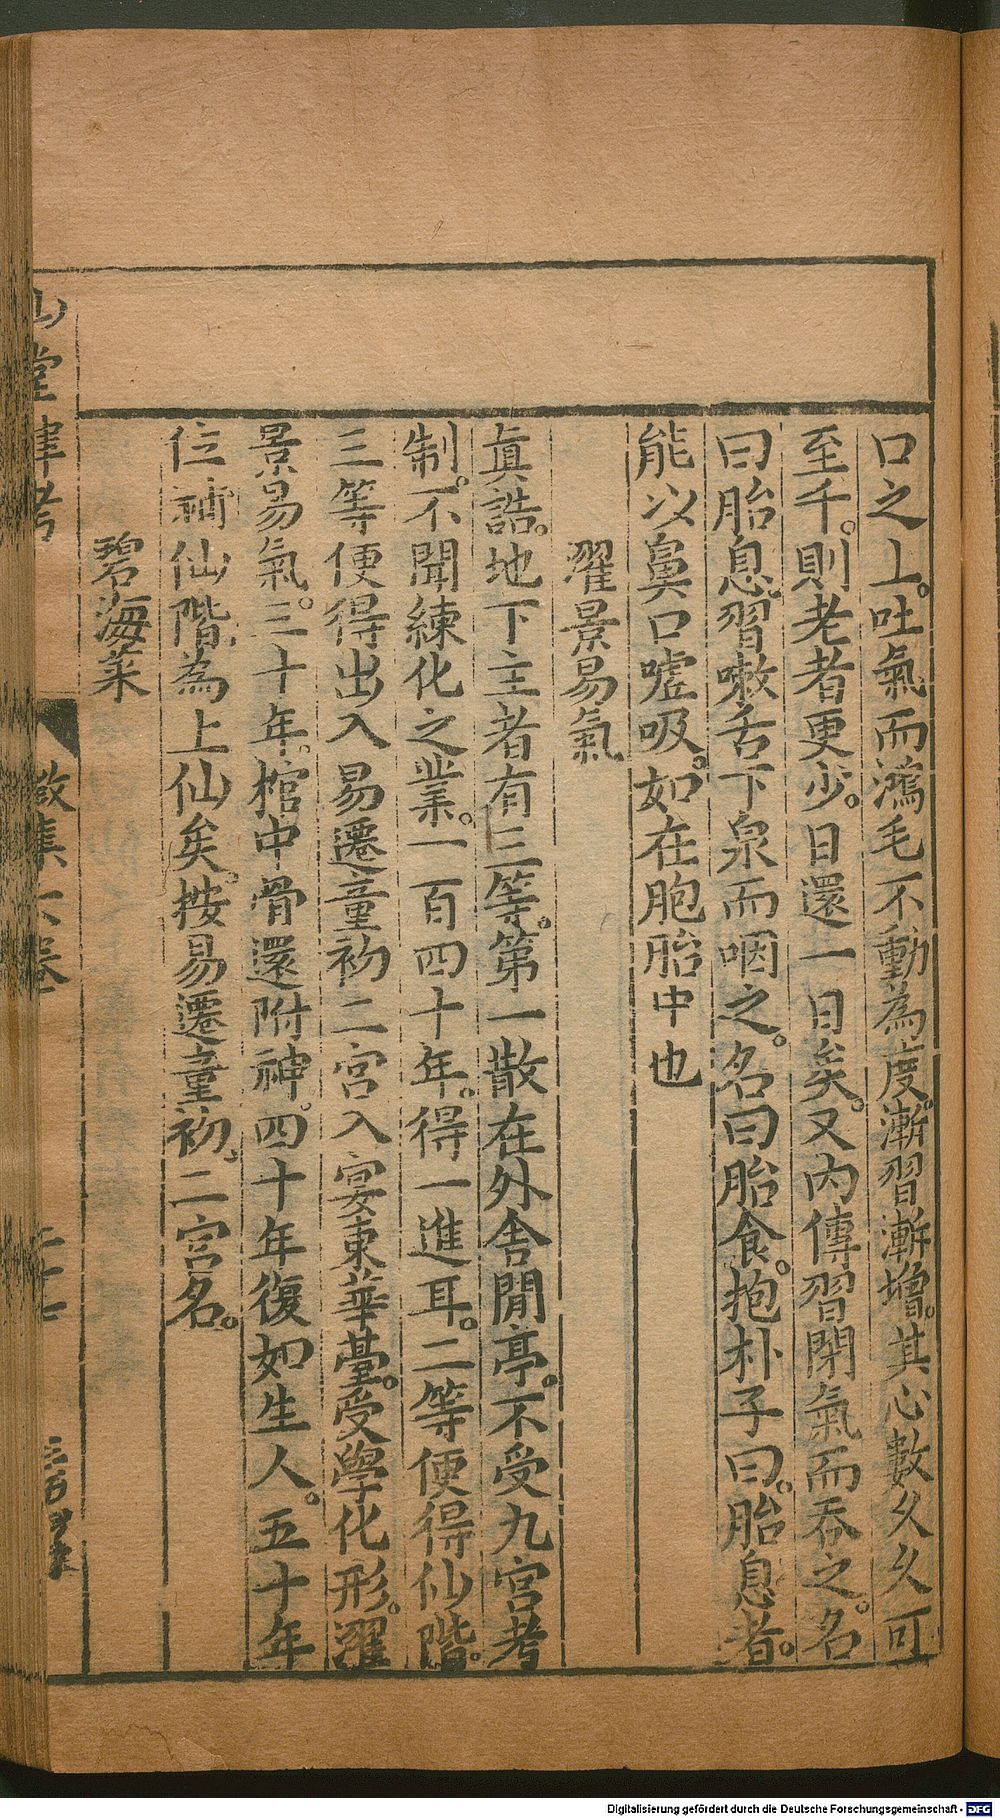 口之上。吐氣而鴻毛不動為度。漸習漸增。其心數久久可
至千。則老者更少。日還一日矣。又內傳習閉氣而吞之。名
曰胎息。習嗽舌下泉而咽之。名曰胎食。抱朴子曰。胎息者。
能以鼻口噓吸。如在胞胎中也
濯景易氣
真誥。地下主者有三等。第一散在外舍閒亭。不受九宮考
制。不聞練化之業。一百四十年。得一進耳。二等便得仙階。
三等便得出入易遷童初二宮入宴東華臺。受學化形。濯
景易氣。三十年。棺中骨還附神。四十年復如生人。五十年
位補仙階。為上仙矣。按易遷童初。二宮名。
碧海菜
山堂肆考
徵集 六卷
二十七
Digitalisierung gefördert durch die Deutsche Forschungsgemeinschaft - DFG